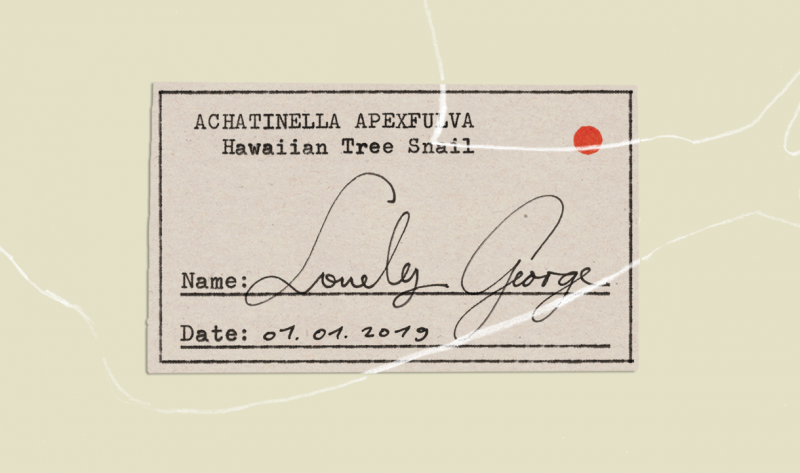 ACHATINELLA APEXFULVA
Hawaiian Tree Snail
Name: Lonely George
Date: 01. 01. 2019